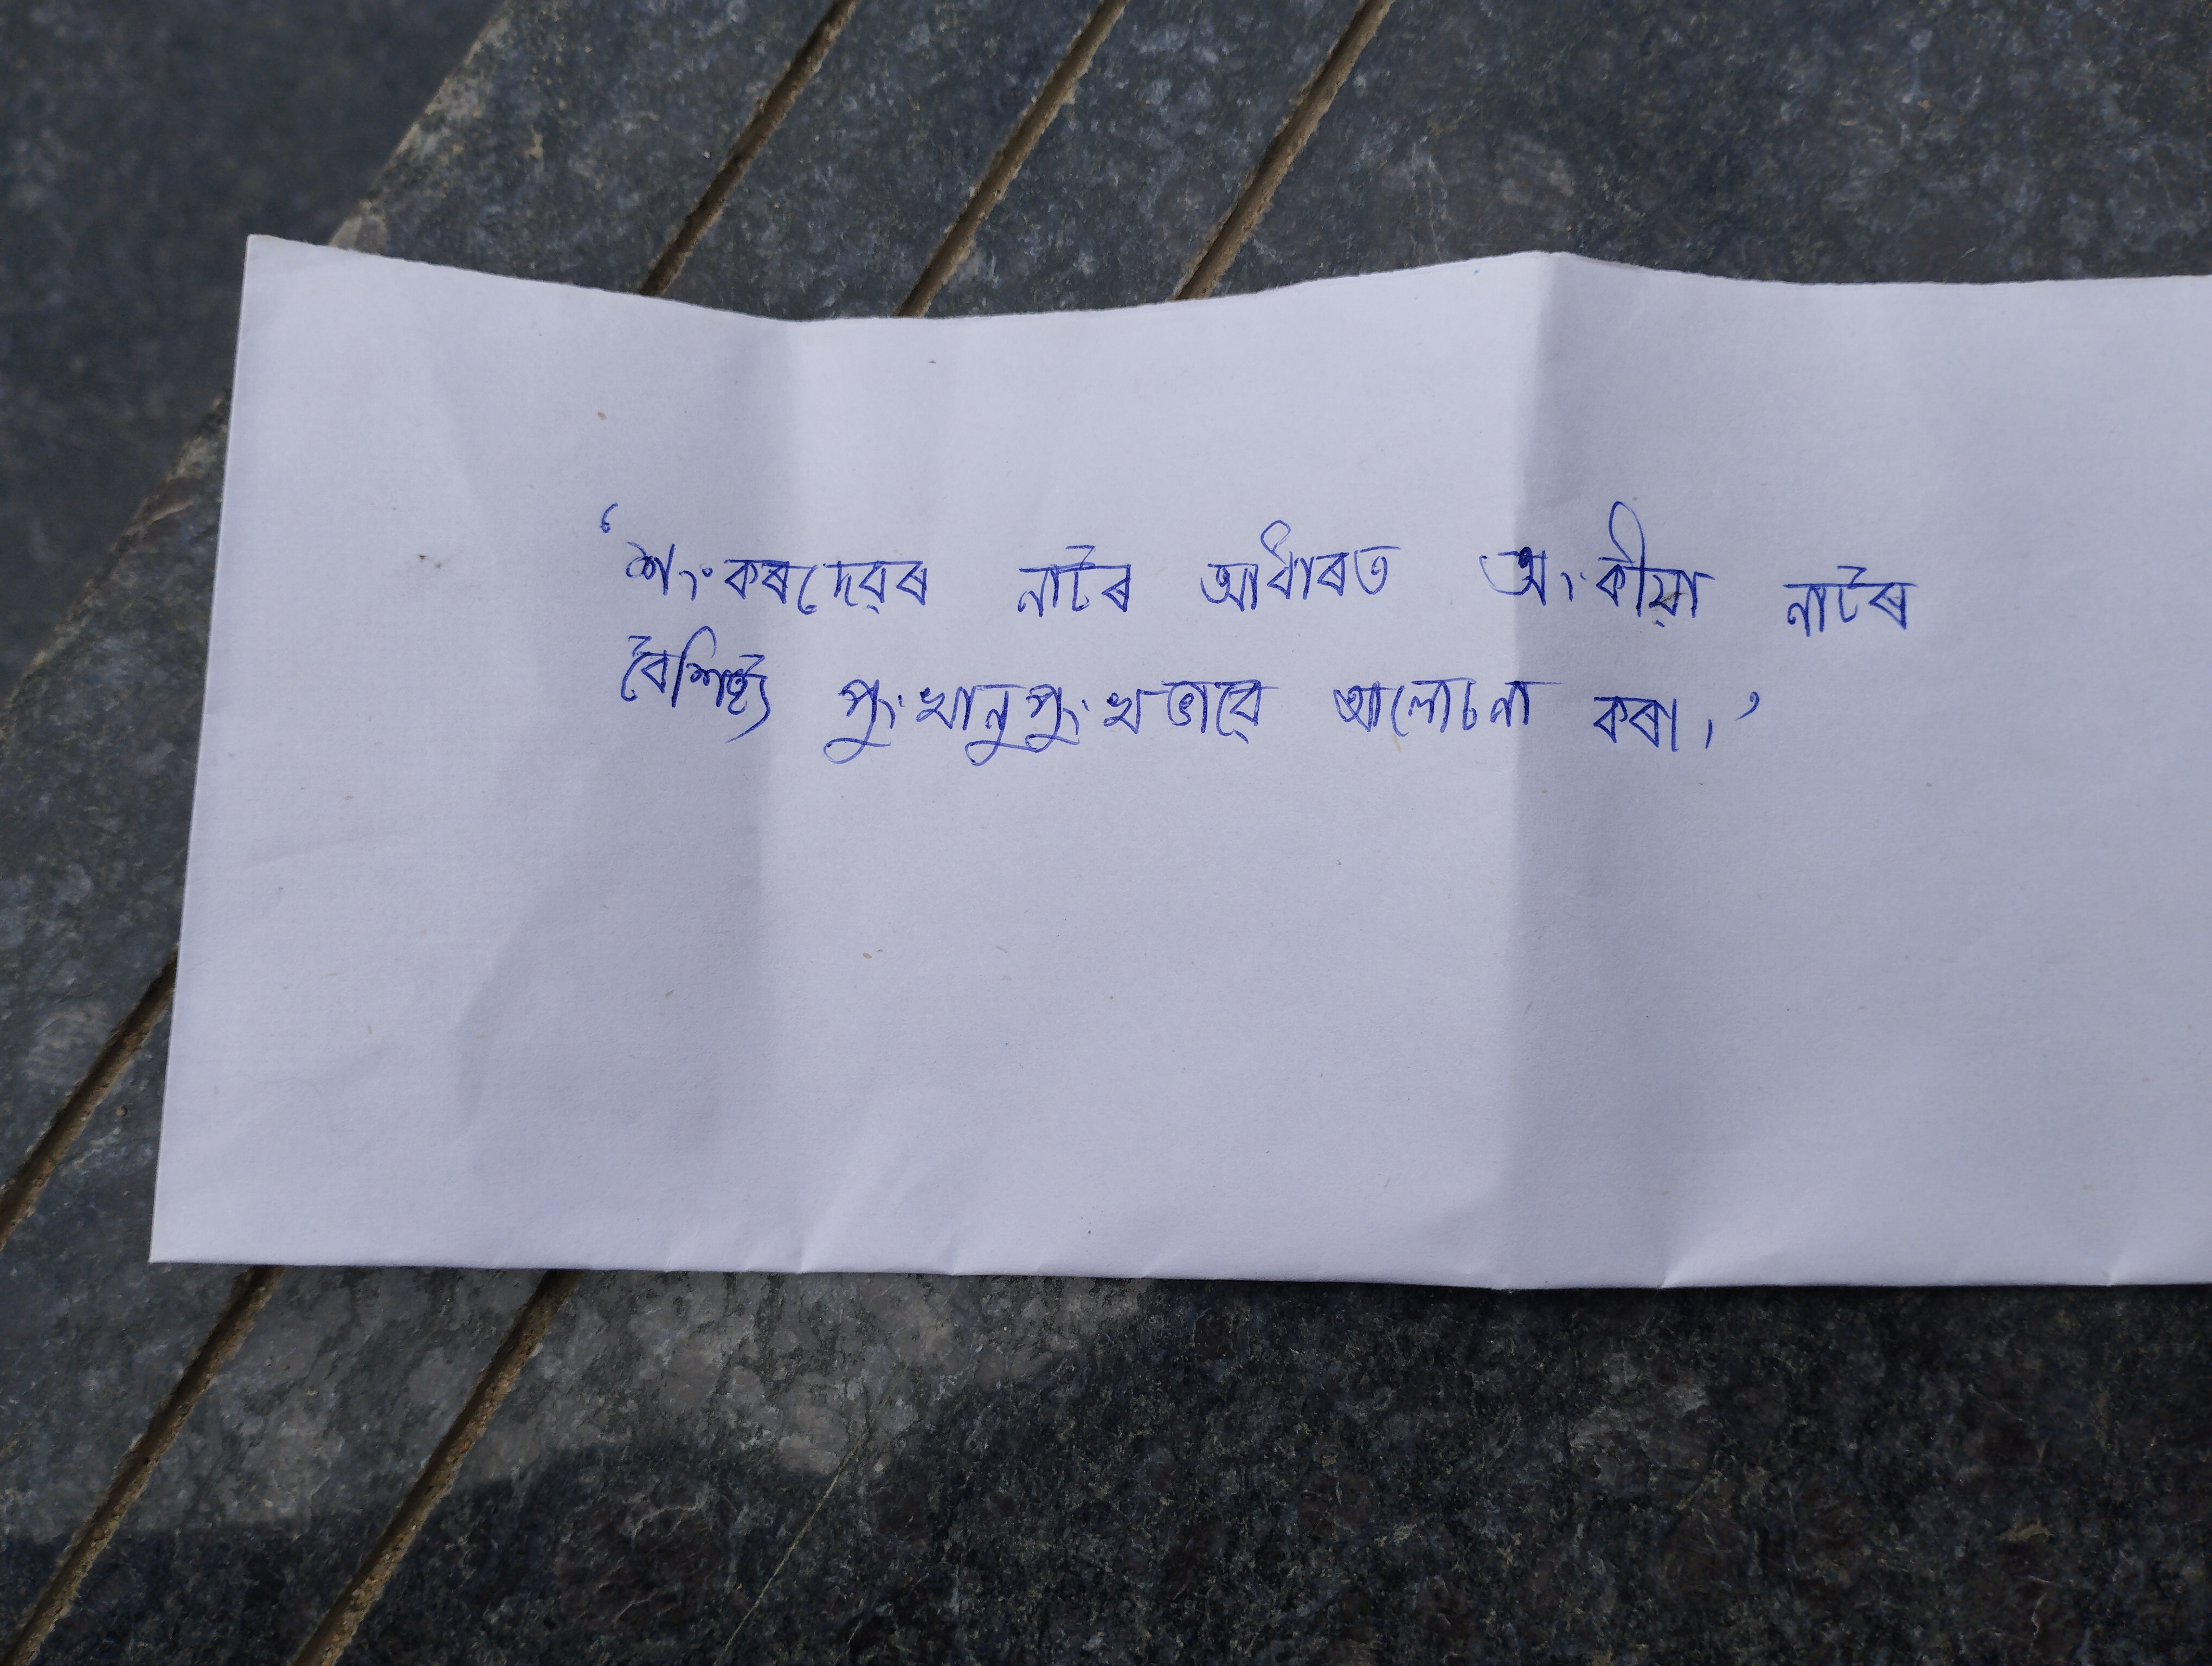 ‘শংকৰদেৱৰ নাটৰ আধাৰত অংকীয়া নাটৰ
বৈশিষ্ট্য পুংখানুপুংখভাৱে আলোচনা কৰা।’